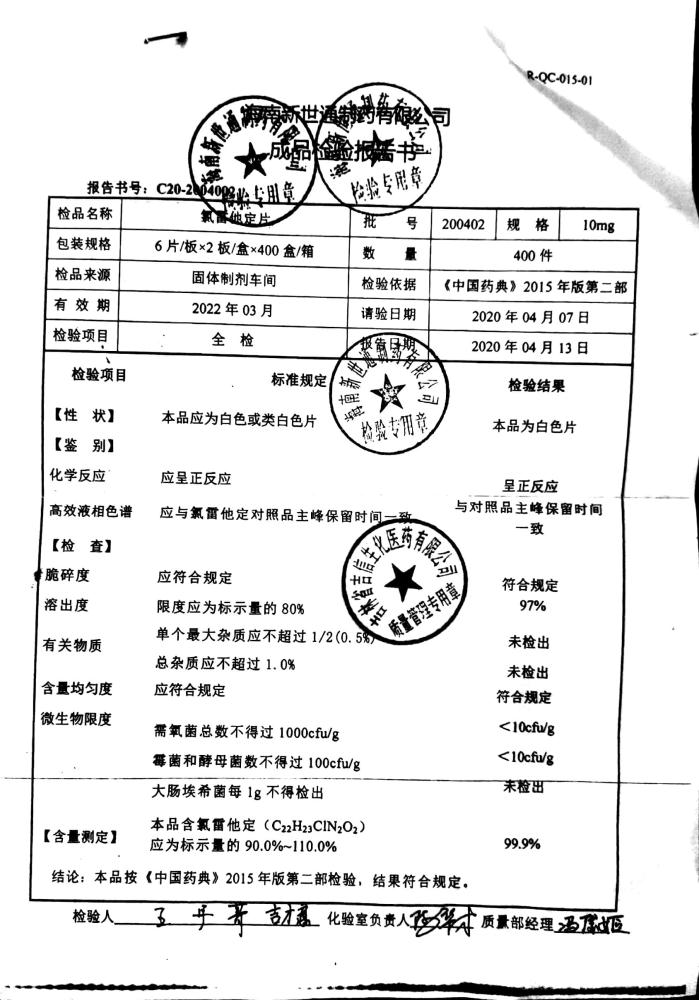 R-QC-015-01
海南新世通制药有限公司
成品检验报告书
报告书号：C20-2004002
检品名称 氯雷他定片 批 号 200402 规 格 10mg
包装规格 6片/板×2板/盒×400盒/箱 数 量 400件
检品来源 固体制剂车间 检验依据 《中国药典》2015年版第二部
有 效 期 2022年03月 请验日期 2020年04月07日
检验项目 全 检 报告日期 2020年04月13日
检验项目 标准规定 检验结果
【性 状】 本品应为白色或类白色片 本品为白色片
【鉴 别】
化学反应 应呈正反应 呈正反应
高效液相色谱 应与氯雷他定对照品主峰保留时间一致 与对照品主峰保留时间
一致
【检 查】
脆碎度 应符合规定 符合规定
溶出度 限度应为标示量的80% 97%
有关物质 单个最大杂质应不超过1/2(0.5%) 未检出
总杂质应不超过1.0% 未检出
含量均匀度 应符合规定 符合规定
微生物限度
需氧菌总数不得过1000cfu/g <10cfu/g
霉菌和酵母菌数不得过100cfu/g <10cfu/g
大肠埃希菌每1g不得检出 未检出
【含量测定】 本品含氯雷他定（C₂₂H₂₃ClN₂O₂）
应为标示量的90.0%~110.0% 99.9%
结论：本品按《中国药典》2015年版第二部检验，结果符合规定。
检验人 化验室负责人 质量部经理
海南新世通制药有限公司
检验专用章
海南新世通制药有限公司
检验专用章
海南新世通制药有限公司
检验专用章
吉林省古信生化医药有限公司
质量管理专用章